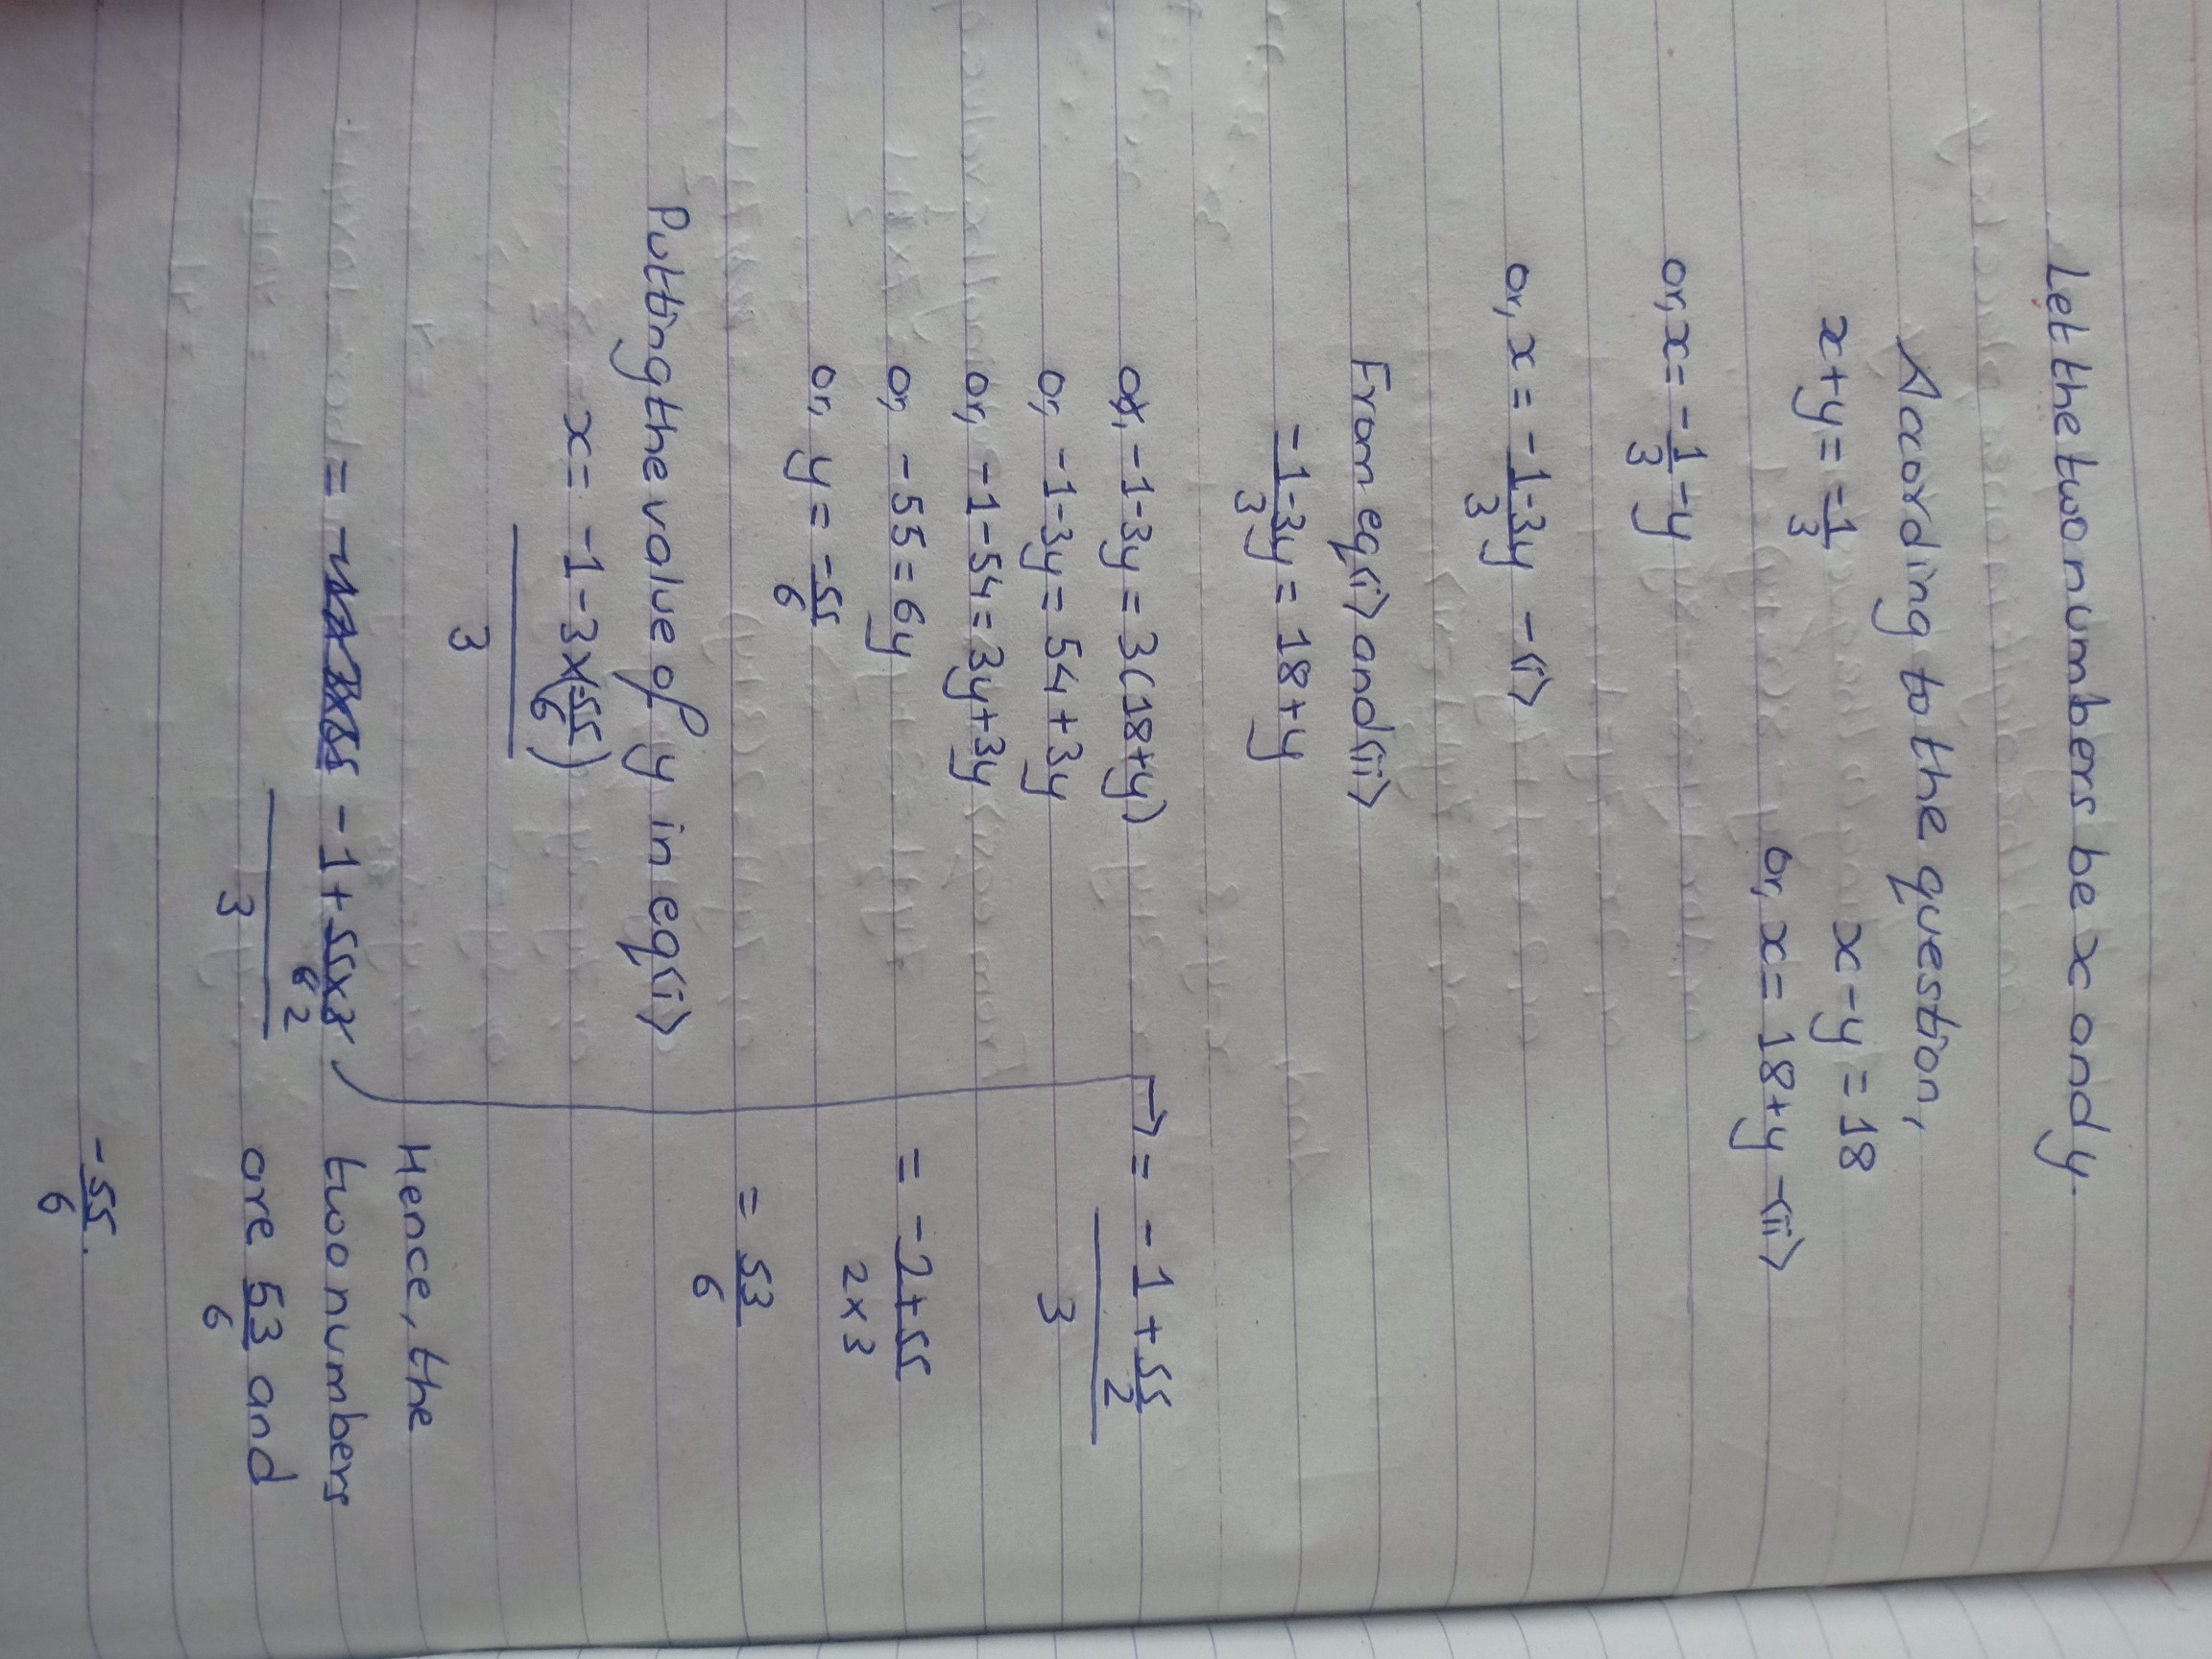 Let the two numbers be x and y.
According to the question,
x+y = -1/3
x-y = 18
or, x = 18+y -(ii)
or, x = -1/3 - y
or, x = -1-3y/3 -(i)
From eq(i) and (ii)
-1-3y/3 = 18+y
or, -1-3y = 3(18+y)
or, -1-3y = 54+3y
or, -1-54 = 3y+3y
or, -55 = 6y
or, y = -55/6
Putting the value of y in eq(i)
x = -1-3×(-55/6)/3
= -1+55×3/6 2/3
→ = -1+55/2/3
= -2+55/2×3
= 53/6
Hence, the
two numbers
are 53/6 and
-55/6.